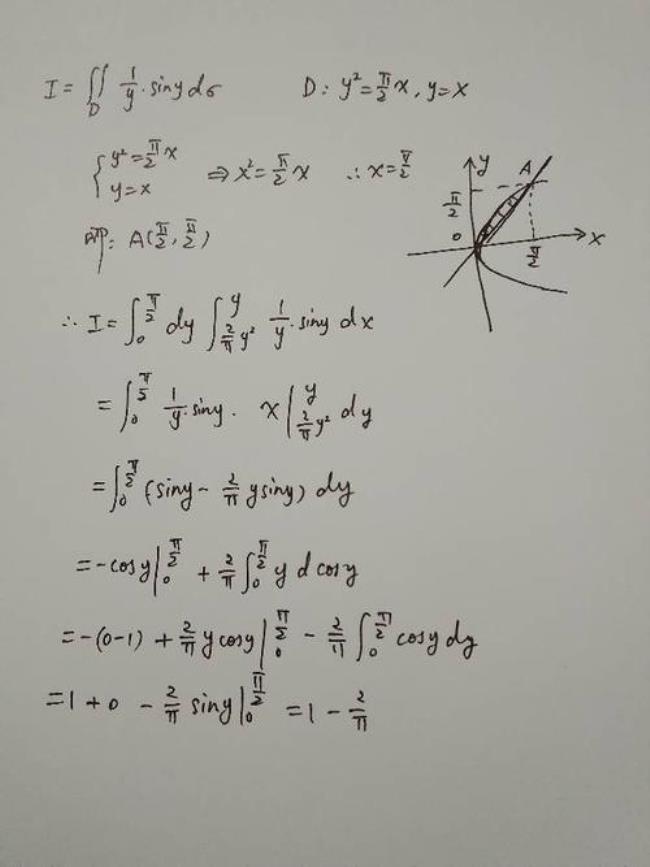 I = ∬_D 1/y · siny dσ    D: y² = π/2 x, y = x
{ y² = π/2 x, y = x ⇒ x² = π/2 x ∴ x = π/2
即: A(π/2, π/2)
y A π/2 0 π/2 x
∴ I = ∫_0^{π/2} dy ∫_{2/π y²}^{y} 1/y · siny dx
= ∫_0^{π/2} 1/y · siny · x |_{2/π y²}^{y} dy
= ∫_0^{π/2} (siny - 2/π y siny) dy
= -cosy |_0^{π/2} + 2/π ∫_0^{π/2} y d cosy
= -(0-1) + 2/π y cosy |_0^{π/2} - 2/π ∫_0^{π/2} cosy dy
= 1 + 0 - 2/π siny |_0^{π/2} = 1 - 2/π